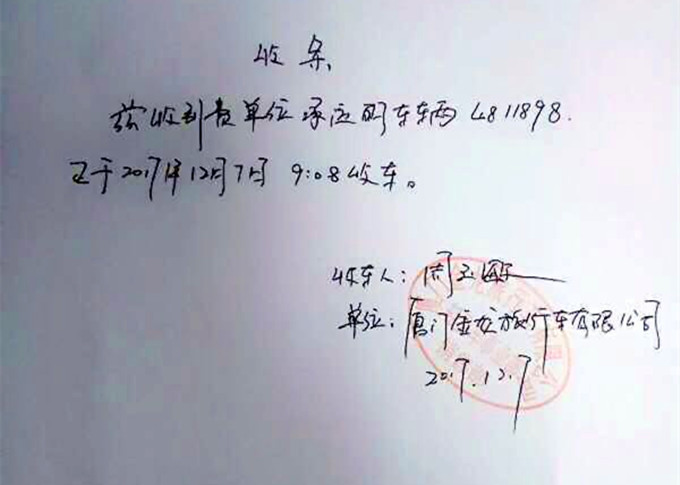 收条
兹收到贵单位承运的车车两4811898.
已于2017年12月7日 9:08收车。
收车人:周玉
单位:厦门金龙旅行车有限公司
2017.12.7